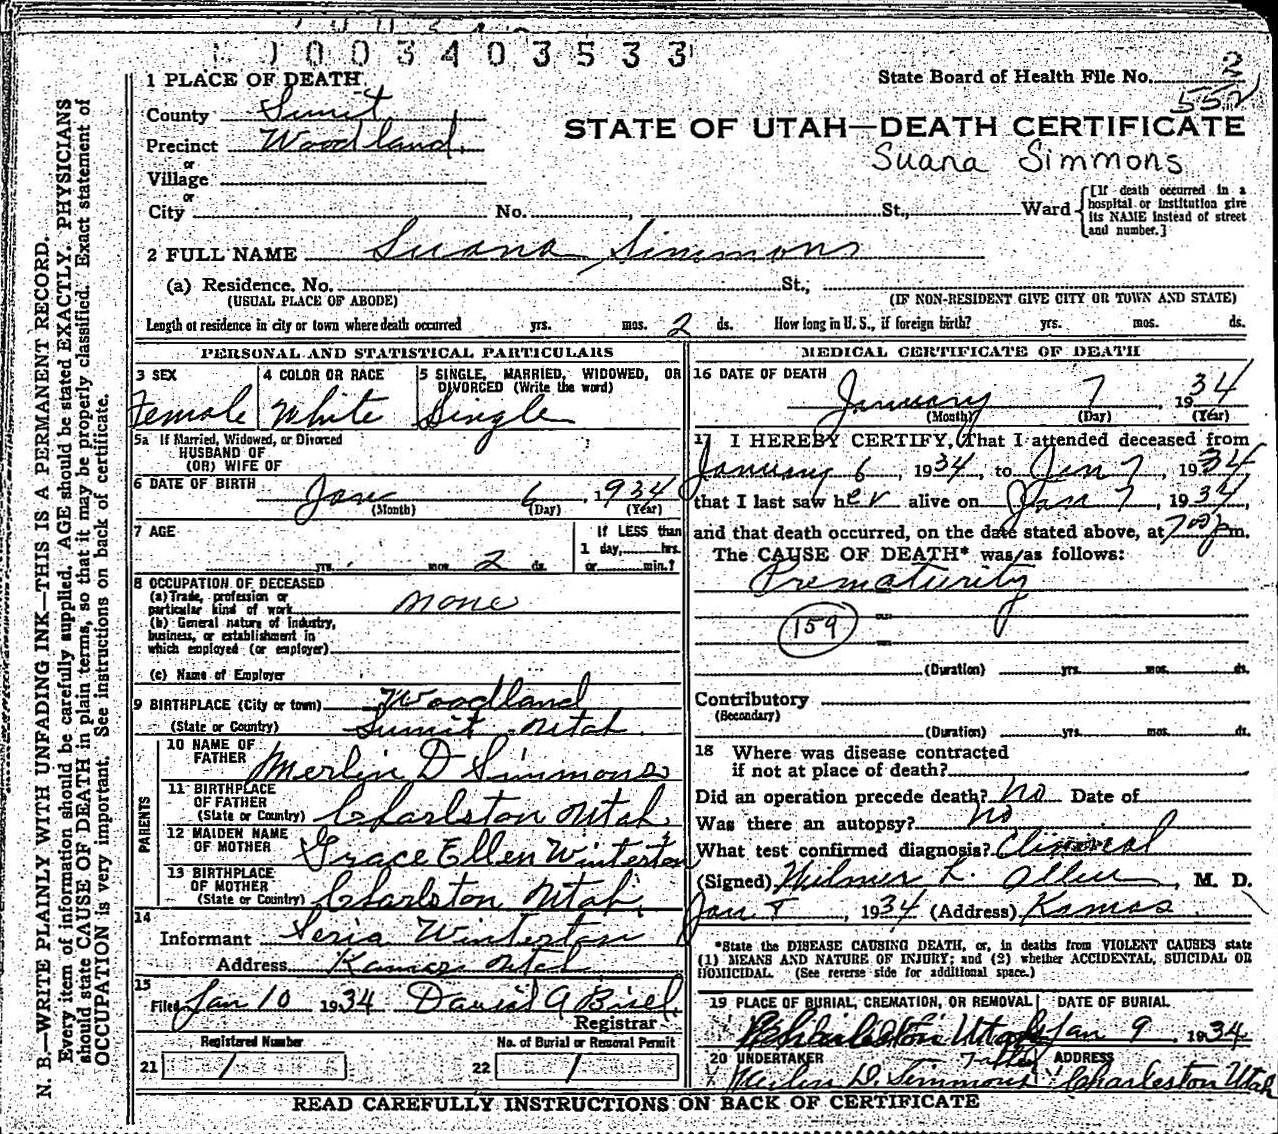 1 0 0 3 4 0 3 5 3 3
1 PLACE OF DEATH
State Board of Health File No. 2
552
County Sumit
STATE OF UTAH—DEATH CERTIFICATE
Precinct Woodland.
Suana Simmons
or
Village
or
City No. , St., Ward
[If death occurred in a
hospital or institution give
its NAME instead of street
and number.]
2 FULL NAME Suana Simmons
(a) Residence. No. St.,
(USUAL PLACE OF ABODE) (IF NON-RESIDENT GIVE CITY OR TOWN AND STATE)
Length of residence in city or town where death occurred yrs. mos. 2 ds. How long in U. S., if foreign birth? yrs. mos. ds.
PERSONAL AND STATISTICAL PARTICULARS
3 SEX
Female
4 COLOR OR RACE
White
5 SINGLE, MARRIED, WIDOWED, OR
DIVORCED (Write the word)
Single
5a If Married, Widowed, or Divorced
HUSBAND OF
(OR) WIFE OF
6 DATE OF BIRTH Jan 6, 1934
(Month) (Day) (Year)
7 AGE
yrs. mos. 2 ds.
If LESS than
1 day, hrs.
or min.?
8 OCCUPATION OF DECEASED
(a) Trade, profession or
particular kind of work none
(b) General nature of industry,
business, or establishment in
which employed (or employer)
(c) Name of Employer
9 BIRTHPLACE (City or town) Woodland
(State or Country) Sumit Utah
PARENTS
10 NAME OF
FATHER Merlin D Simmons
11 BIRTHPLACE
OF FATHER
(State or Country) Charlston Utah
12 MAIDEN NAME
OF MOTHER Grace Ellen Winterton
13 BIRTHPLACE
OF MOTHER
(State or Country) Charlston Utah
14
Informant Winterton
Address Kamas Utah
15
Filed Jan 10 1934 David A
Registrar
Registered Number No. of Burial or Removal Permit
21 1 22 1
MEDICAL CERTIFICATE OF DEATH
16 DATE OF DEATH
January 7, 1934
(Month) (Day) (Year)
17 I HEREBY CERTIFY, That I attended deceased from
January 6, 1934, to Jan 7, 1934
that I last saw her alive on Jan 7, 1934,
and that death occurred, on the date stated above, at 7 00 p m.
The CAUSE OF DEATH* was as follows:
Prematurity
159
(Duration) yrs. mos. ds.
Contributory
(Secondary)
(Duration) yrs. mos. ds.
18 Where was disease contracted
if not at place of death?
Did an operation precede death? No Date of
Was there an autopsy? No
What test confirmed diagnosis? Clinical
(Signed) Wilmer L. Allen, M. D.
Jan , 1934 (Address) Kamas
*State the DISEASE CAUSING DEATH, or, in deaths from VIOLENT CAUSES state
(1) MEANS AND NATURE OF INJURY; and (2) whether ACCIDENTAL, SUICIDAL OR
HOMICIDAL. (See reverse side for additional space.)
19 PLACE OF BURIAL, CREMATION, OR REMOVAL DATE OF BURIAL
Utah Jan 9 1934
20 UNDERTAKER Father ADDRESS
Merlin D. Simmons Charleston Utah
READ CAREFULLY INSTRUCTIONS ON BACK OF CERTIFICATE
N. B.—WRITE PLAINLY WITH UNFADING INK—THIS IS A PERMANENT RECORD.
Every item of information should be carefully supplied. AGE should be stated EXACTLY. PHYSICIANS
should state CAUSE OF DEATH in plain terms, so that it may be properly classified. Exact statement of
OCCUPATION is very important. See instructions on back of certificate.